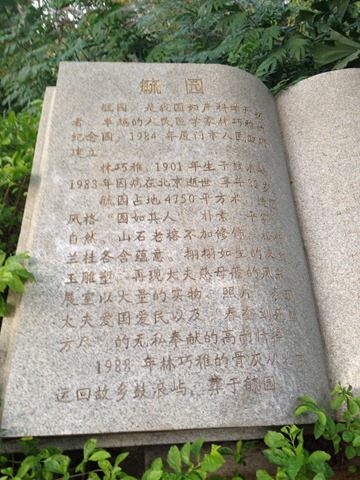 毓园
毓园，是我国妇产科学开拓
者、卓越的人民医学家林巧稚的
纪念园，1984年厦门市人民政府
建立。
林巧稚，1901年生于鼓浪屿，
1983年因病在北京逝世，享年82岁
毓园占地4750平方米，造园
风格“园如其人”，朴素、平实、
自然，山石老榕不加修饰，
兰桂各含蕴意。栩栩如生的汉白
玉雕塑，再现大夫慈母般的风
展室以大量的实物、照片，
大夫爱国爱民以及“春蚕到死丝
方尽”的无私奉献的高尚情操。
1988年林巧稚的骨灰从北京
运回故乡鼓浪屿，葬于毓园